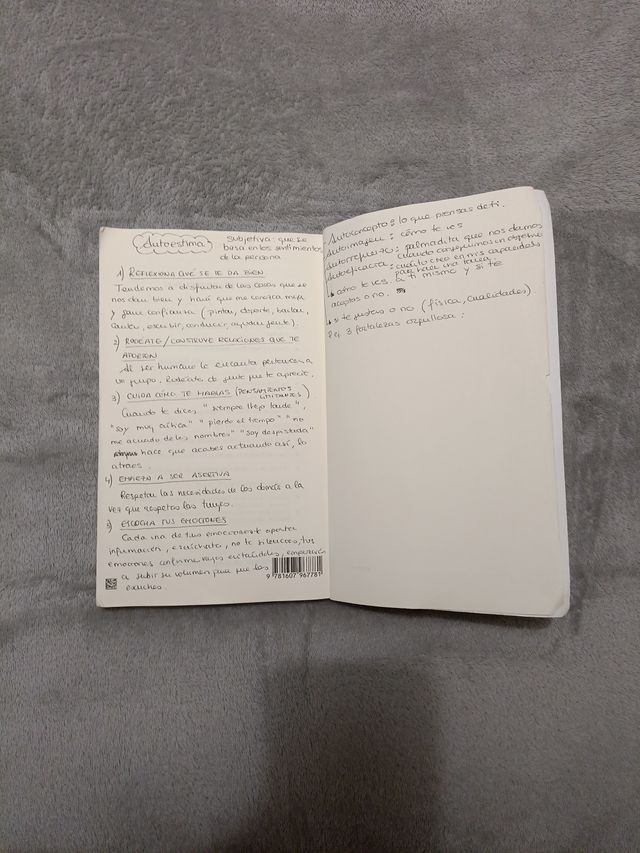 Autoestima
Subjetiva: que se
basa en los sentimientos
de la persona
1) REFLEXIONA QUÉ SE TE DA BIEN
Tendemos a disfrutar de las cosas que se
nos dan bien y hará que me conozca mejor
y gane confianza (pintar, deporte, bailar,
cantar, escribir, conducir, ayudar gente).
2) RODÉATE / CONSTRUYE RELACIONES QUE TE
APORTEN
Al ser humano le encanta pertenecer a
un grupo. Rodéate de gente que te aprecie.
3) CUIDA CÓMO TE HABLAS (PENSAMIENTOS
LIMITANTES)
Cuando te dices "siempre llego tarde",
"soy muy crítica" "pierdo el tiempo" "no
me acuerdo de los nombres" "soy despistada"
hace que acabes actuando así, lo
atraes.
4) EMPIEZA A SER ASERTIVA
Respetar las necesidades de los demás a la
vez que respetas las tuyas.
5) ESCUCHA TUS EMOCIONES
Cada una de tus emociones te aporta
información, escúchate, no te silencies, tus
emociones conforme vayas evitándolas, empezarán
a subir su volumen para que las
escuches
9 781607 967781
Autoconcepto: lo que piensas de ti.
Autoimagen: cómo te ves
Autorrefuerzo: palmadita que nos damos
cuando conseguimos un objetivo
Autoeficacia: cuánto creo en mis capacidades
para hacer una tarea
cómo te ves a ti mismo y si te
aceptas o no.
si te gustas o no (física, cualidades)
P.ej. 3 fortalezas orgullosa: